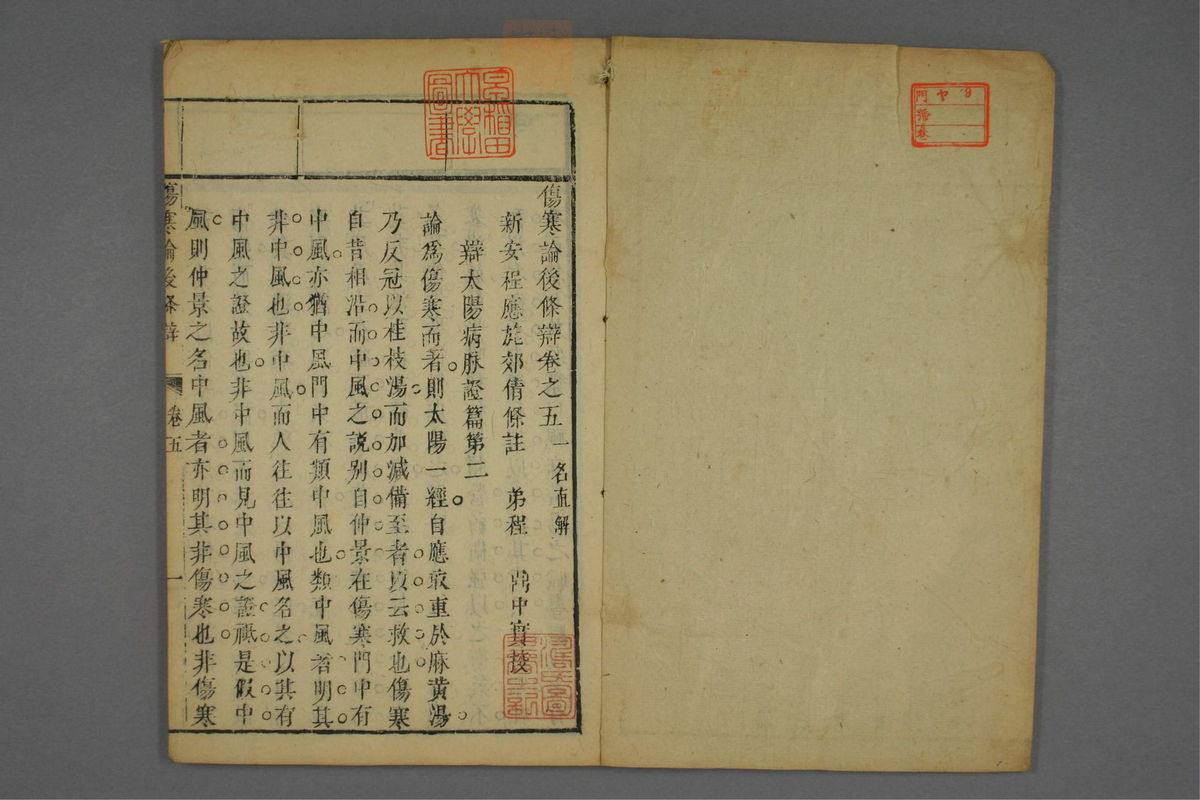 傷寒論後條辯卷之五 一名直解
新安程應旄郊倩條註 弟程 鼎中實挍
辯太陽病脉證篇第二
論爲傷寒而著則太陽一經自應㝡重於麻黃湯
乃反冠以桂枝湯而加減備至者以云救也傷寒
自昔相沿而中風之説别自仲景在傷寒門中有
中風亦猶中風門中有類中風也類中風者明其
非中風也非中風而人往往以中風名之以其有
中風之證故也非中風而見中風之證秪是假中
風則仲景之名中風者亦明其非傷寒也非傷寒
傷寒論後條辯 卷五 一
早稻田大學圖書
門 ヤ 9
號
卷